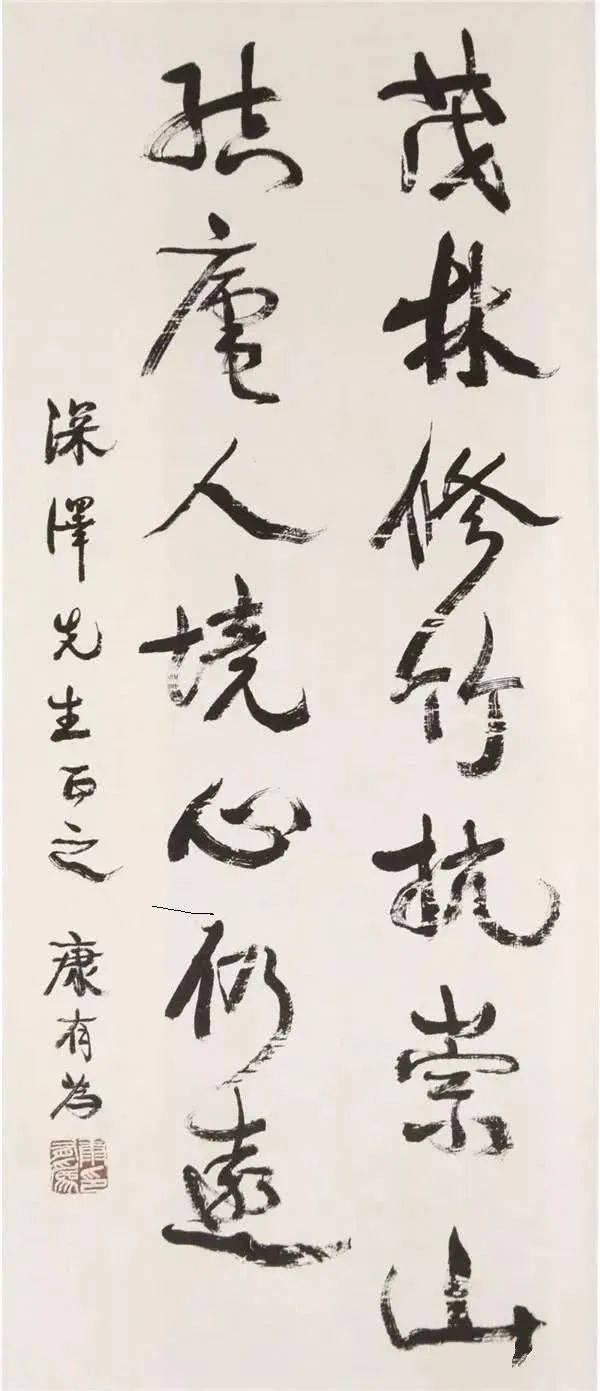 茂林修竹抗崇山
結廬人境心仍遠
深澤先生正之 康有為